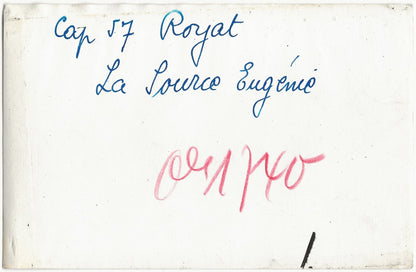 Cap 57 Royat
La Source Eugénie